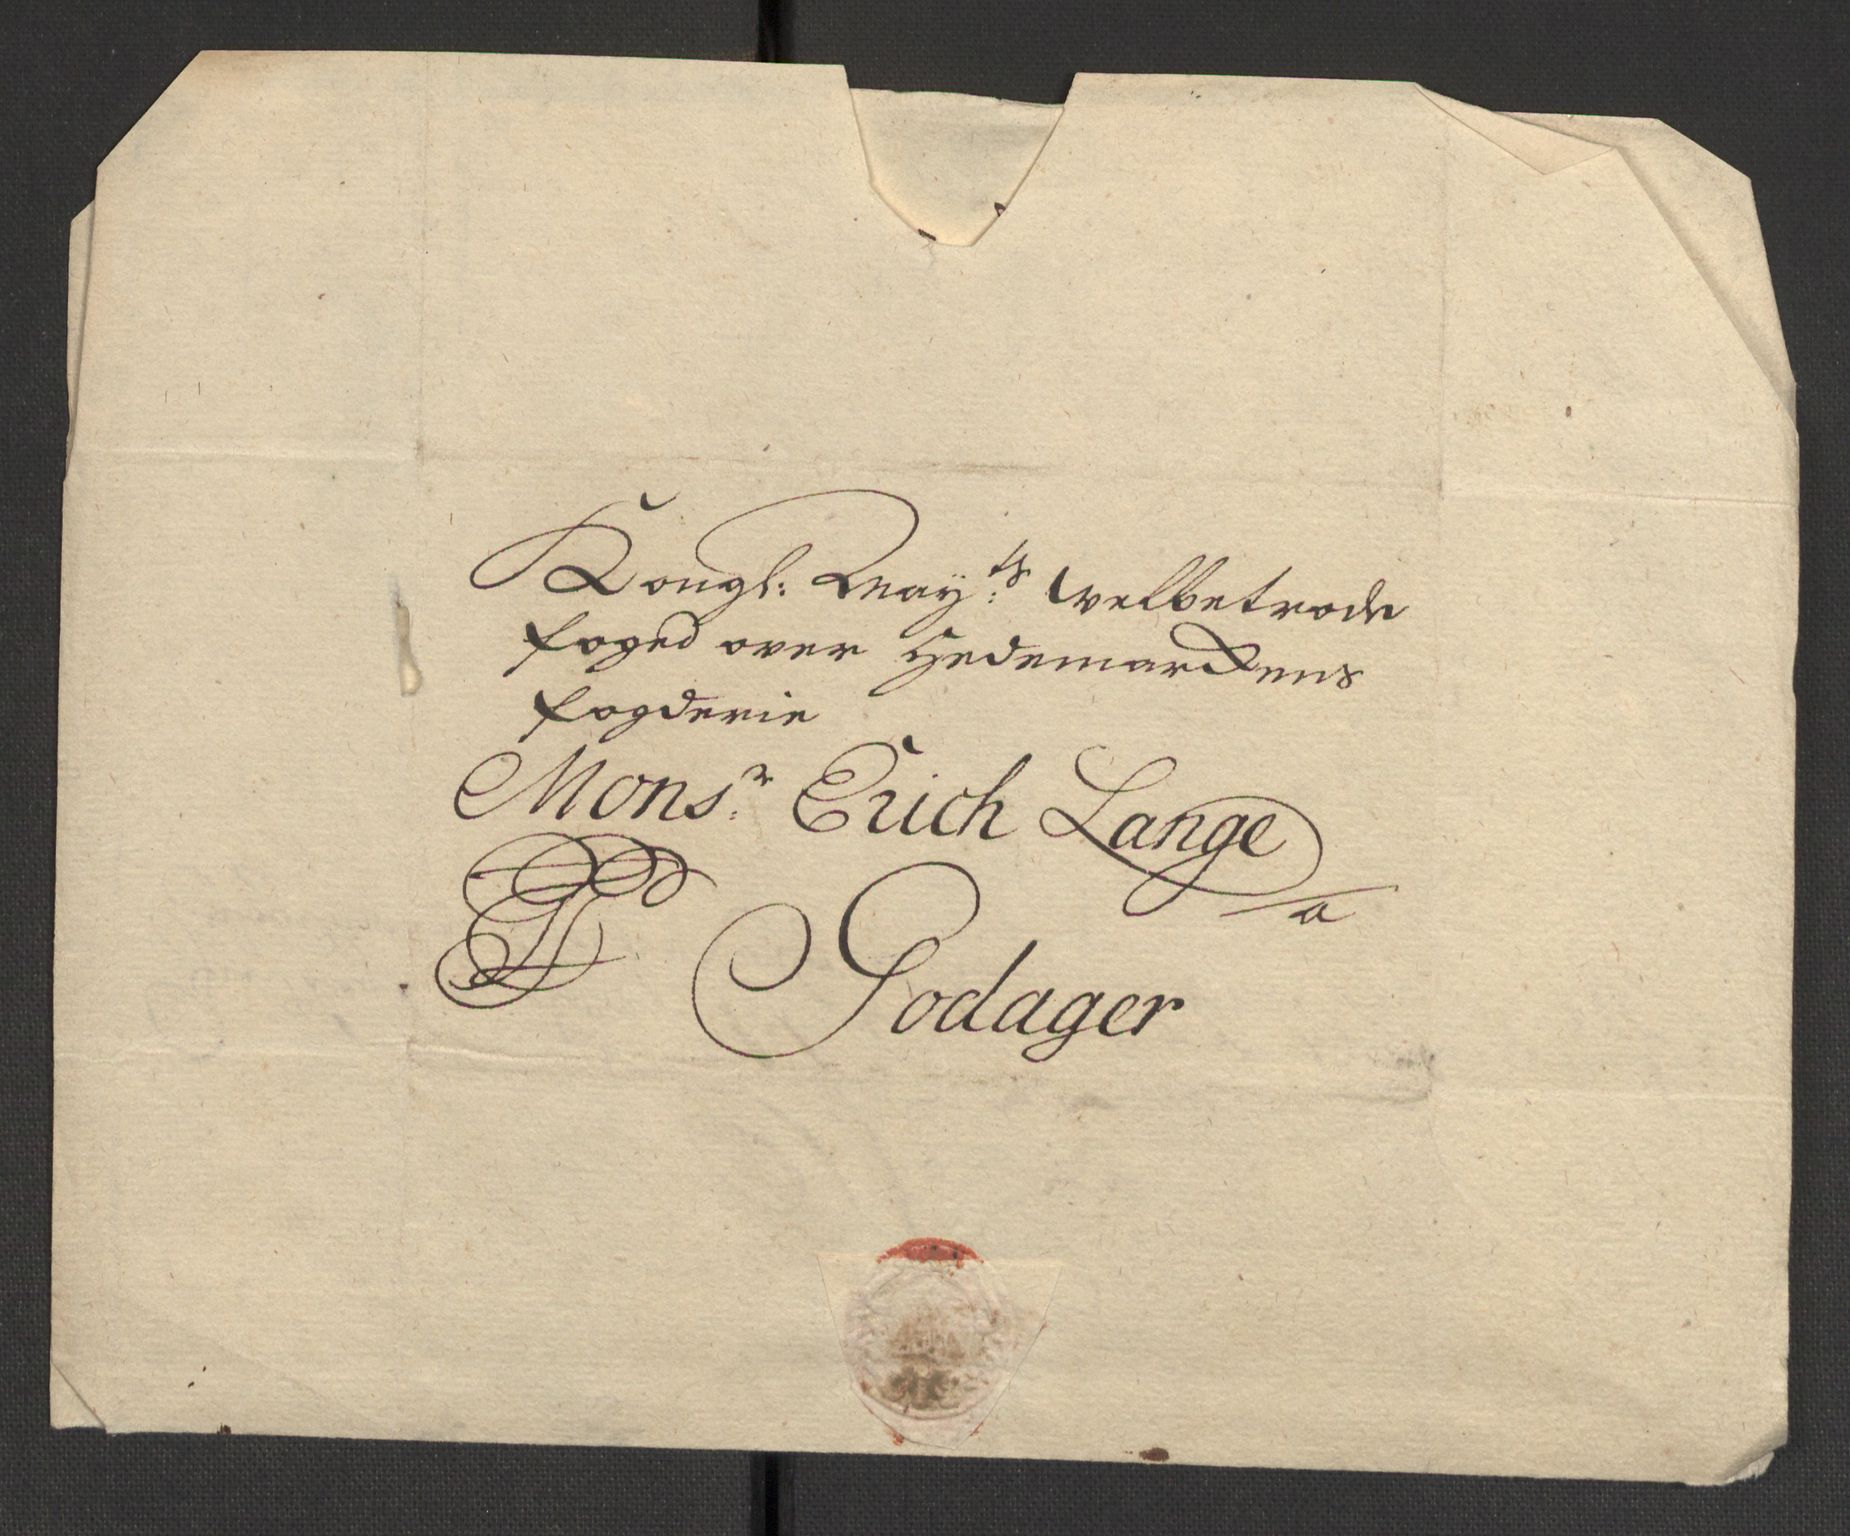 Kongl: Maÿ:ts Welbetrode
foged over Hedemarkens
fogderie
Mons:r Erich Lange
a
Godager